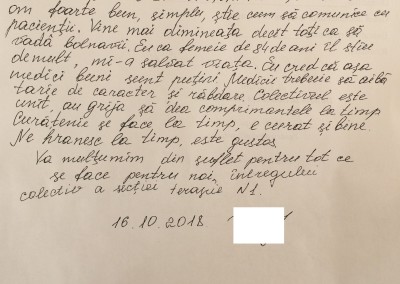 om foarte bun, simplu, știe cum să comunice cu
pacienții. Vine mai dimineața decît toți ca să
vadă bolnavii. Eu ca femeie de 54 de ani îl știu
demult, mi-a salvat viața. Eu cred că așa
medici buni sunt puțini. Medicii trebuie să aibă
tărie de caracter și răbdare. Colectivul este
unit, au grija să dea comprimantele la timp
Curățenie se face la timp, e curat și bine.
Ne hranesc la timp, este gustos
Va mulțumim din suflet pentru tot ce
se face pentru noi, întregului
colectiv a secției terapie N1.
16.10.2018.